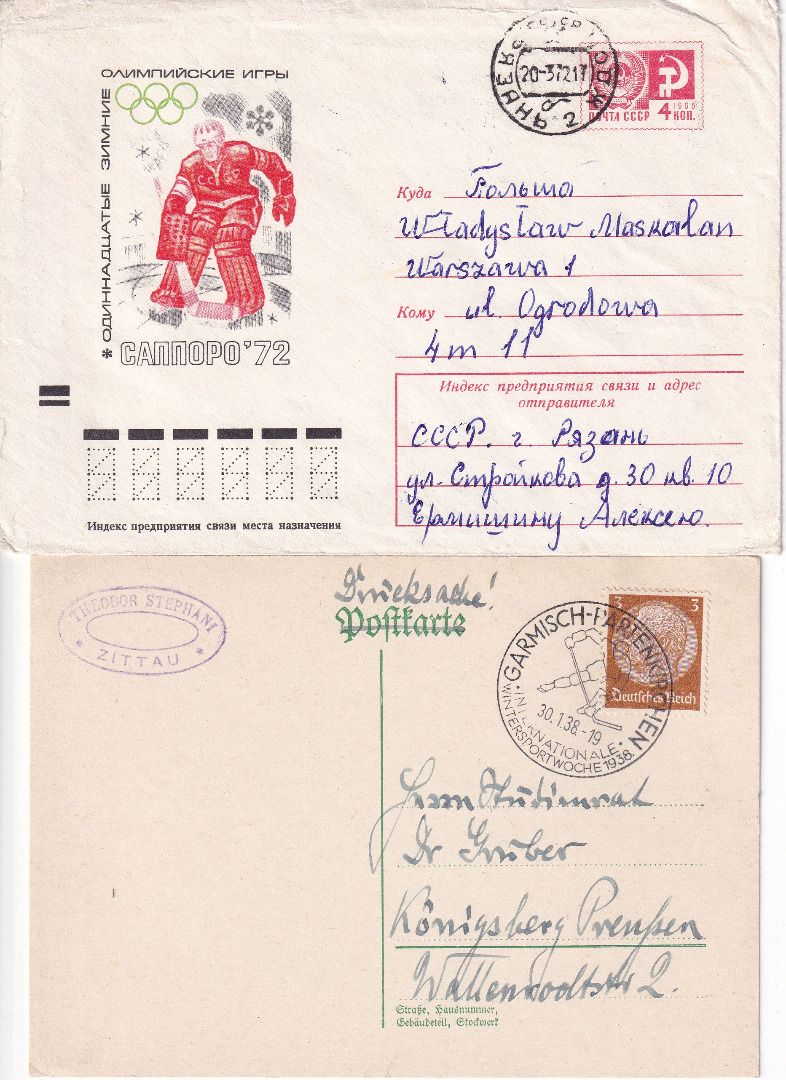 ОЛИМПИЙСКИЕ ИГРЫ
ОДИННАДЦАТЫЕ ЗИМНИЕ
САППОРО'72
20-37217
2
ПОЧТА СССР
4 1966 КОП.
Куда Польша
Władysław Maskalan
Warszawa 1
Кому ul Ogrodowa
4m 11
Индекс предприятия связи и адрес
отправителя
СССР. г. Рязань
ул. Стройкова д. 30 кв. 10
Ермишину Алексею.
Индекс предприятия связи места назначения
THEODOR STEPHANI
* ZITTAU *
Drucksache!
Postkarte
3 3
Deutsches Reich
GARMISCH-PARTENKIRCHEN
30.1.38.-19
INTERNATIONALE
WINTERSPORTWOCHE 1938.
Herrn Studienrat
Dr Gruber
Königsberg Preußen
Wallenrodtstr 2.
Straße, Hausnummer,
Gebäudeteil, Stockwerk